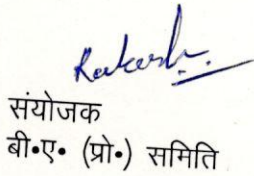 Rakesh
संयोजक
बी॰ए॰ (प्रो॰) समिति